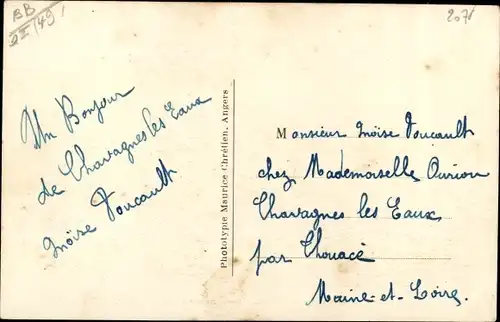 BB
207
Un Bonjour
de Chavagnes les Eaux
Moïse Foucault
Phototypie Maurice Chrétien, Angers
Monsieur Moïse Foucault
chez Mademoiselle Ourion
Chavagnes les Eaux
par Thouacé
Maine-et-Loire.